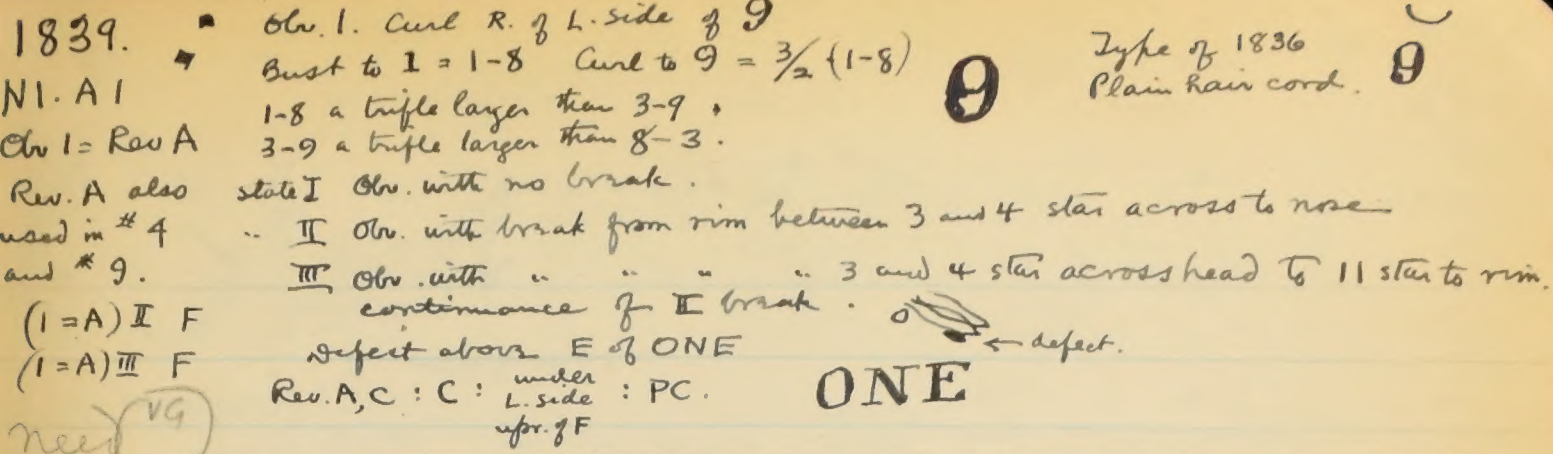 1839.
N1. A1
Obv 1 = Rev A
Rev. A also
used in # 4
and # 9.
(1=A) II F
(1=A) III F
need VG
Obv. 1. Curl R. of L. side of 9
Bust to 1 = 1-8 Curl to 9 = 3/2 (1-8)
1-8 a trifle larger than 3-9.
3-9 a trifle larger than 8-3.
state I Obv. with no break.
" II Obv. with break from rim between 3 and 4 star across to nose
III Obv. with " " " " 3 and 4 star across head to 11 star to rim.
continuance of II break.
Defect above E of ONE
Rev. A, C : C : under L. side upr. of F : PC.
9
Type of 1836
Plain hair cord.
9
← defect.
ONE